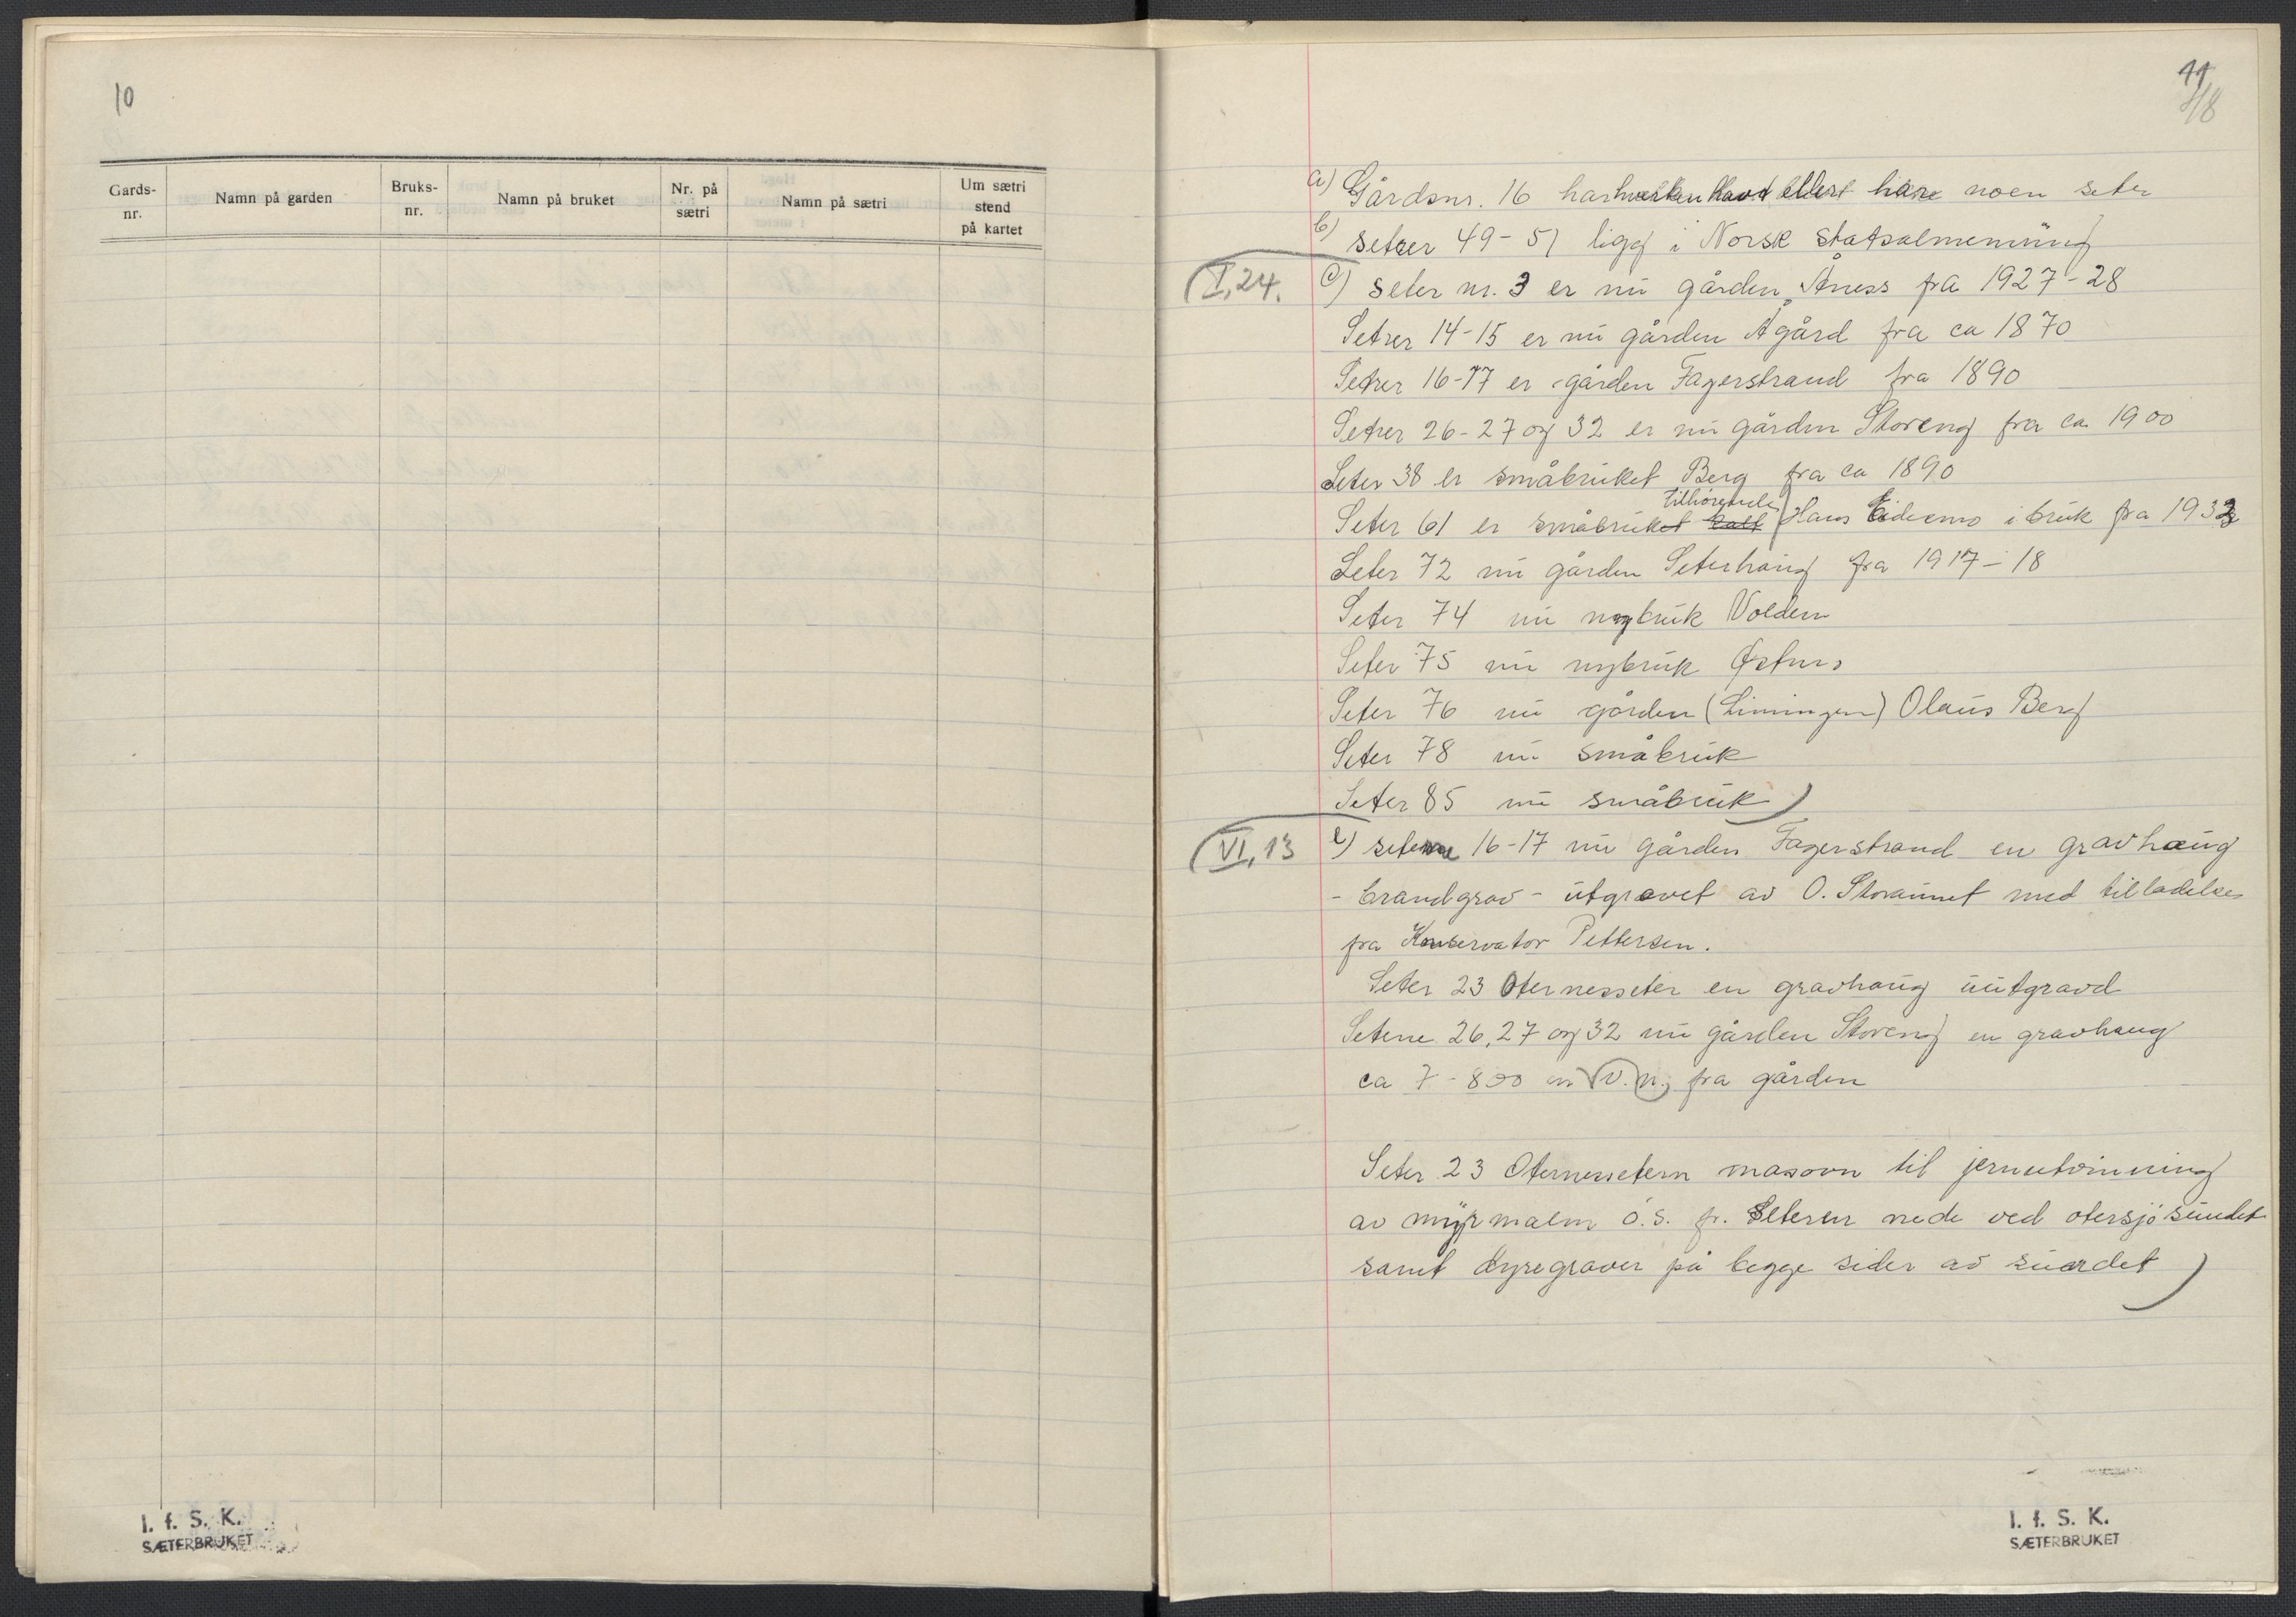 10
Gards-
nr.
Namn på garden
Bruks-
nr.
Namn på bruket
Nr. på
sætri
Namn på sætri
Um sætri
stend
på kartet
I. f. S. K.
SÆTERBRUKET
11
a) Gårdsnr. 16 har hverken havt eller har noen seter
b) setrer 49-51 ligg i Norsk statsalmenning
(I, 24. c) seter nr. 3 er nu gården Åness fra 1927-28
Setrer 14-15 er nu gården Ågård fra ca 1870
Setrer 16-17 er gården Fagerstrand fra 1890
Setrer 26-27 og 32 er nu gården Storeng fra ca 1900
Seter 38 er småbruket Berg fra ca 1890
tilhørende
Seter 61 er småbruket Hans Eidemo i bruk fra 1933
Seter 72 nu gården Seterhaug fra 1917-18
Seter 74 nu nybruk Volden
Seter 75 nu nybruk
Seter 76 nu gården (Limingen) Olaus Berg
Seter 78 nu småbruk
Seter 85 nu småbruk)
(VI, 13 e) seterne 16-17 nu gården Fagerstrand en gravhaug
- brandgrav - utgravet av O. Storaunet med tilladelse
fra Konservator Pettersen.
Seter 23 Oternesseter en gravhaug uutgravd
Setene 26, 27 og 32 nu gården Storeng en gravhaug
ca 7-800 m V.n. fra gården
Seter 23 Oternessetern masovn til jernutvinning
av myrmalm ö.s. fr. Seteren nede ved otersjö sundet
samt dyregraver på begge sider av sundet)
I. f. S. K.
SÆTERBRUKET